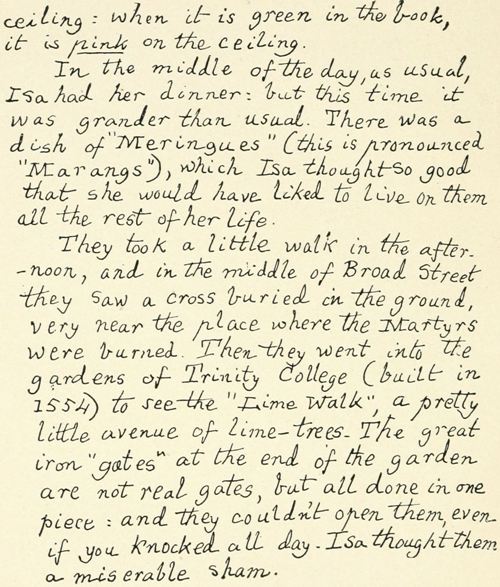 ceiling: when it is green in the book,
it is pink on the ceiling.
In the middle of the day, as usual,
Isa had her dinner: but this time it
was grander than usual. There was a
dish of "Meringues" (this is pronounced
"Marangs"), which Isa thought so good
that she would have liked to live on them
all the rest of her life.
They took a little walk in the after-
-noon, and in the middle of Broad Street
they saw a cross buried in the ground,
very near the place where the Martyrs
were burned. Then they went into the
gardens of Trinity College (built in
1554) to see the "Lime Walk", a pretty
little avenue of lime-trees. The great
iron "gates" at the end of the garden
are not real gates, but all done in one
piece: and they couldn't open them, even
if you knocked all day. Isa thought them
a miserable sham.